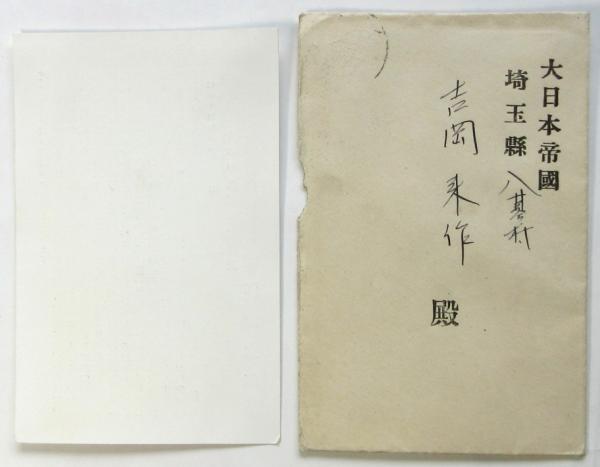 大日本帝國
埼玉縣 八基村
吉岡 来作 殿